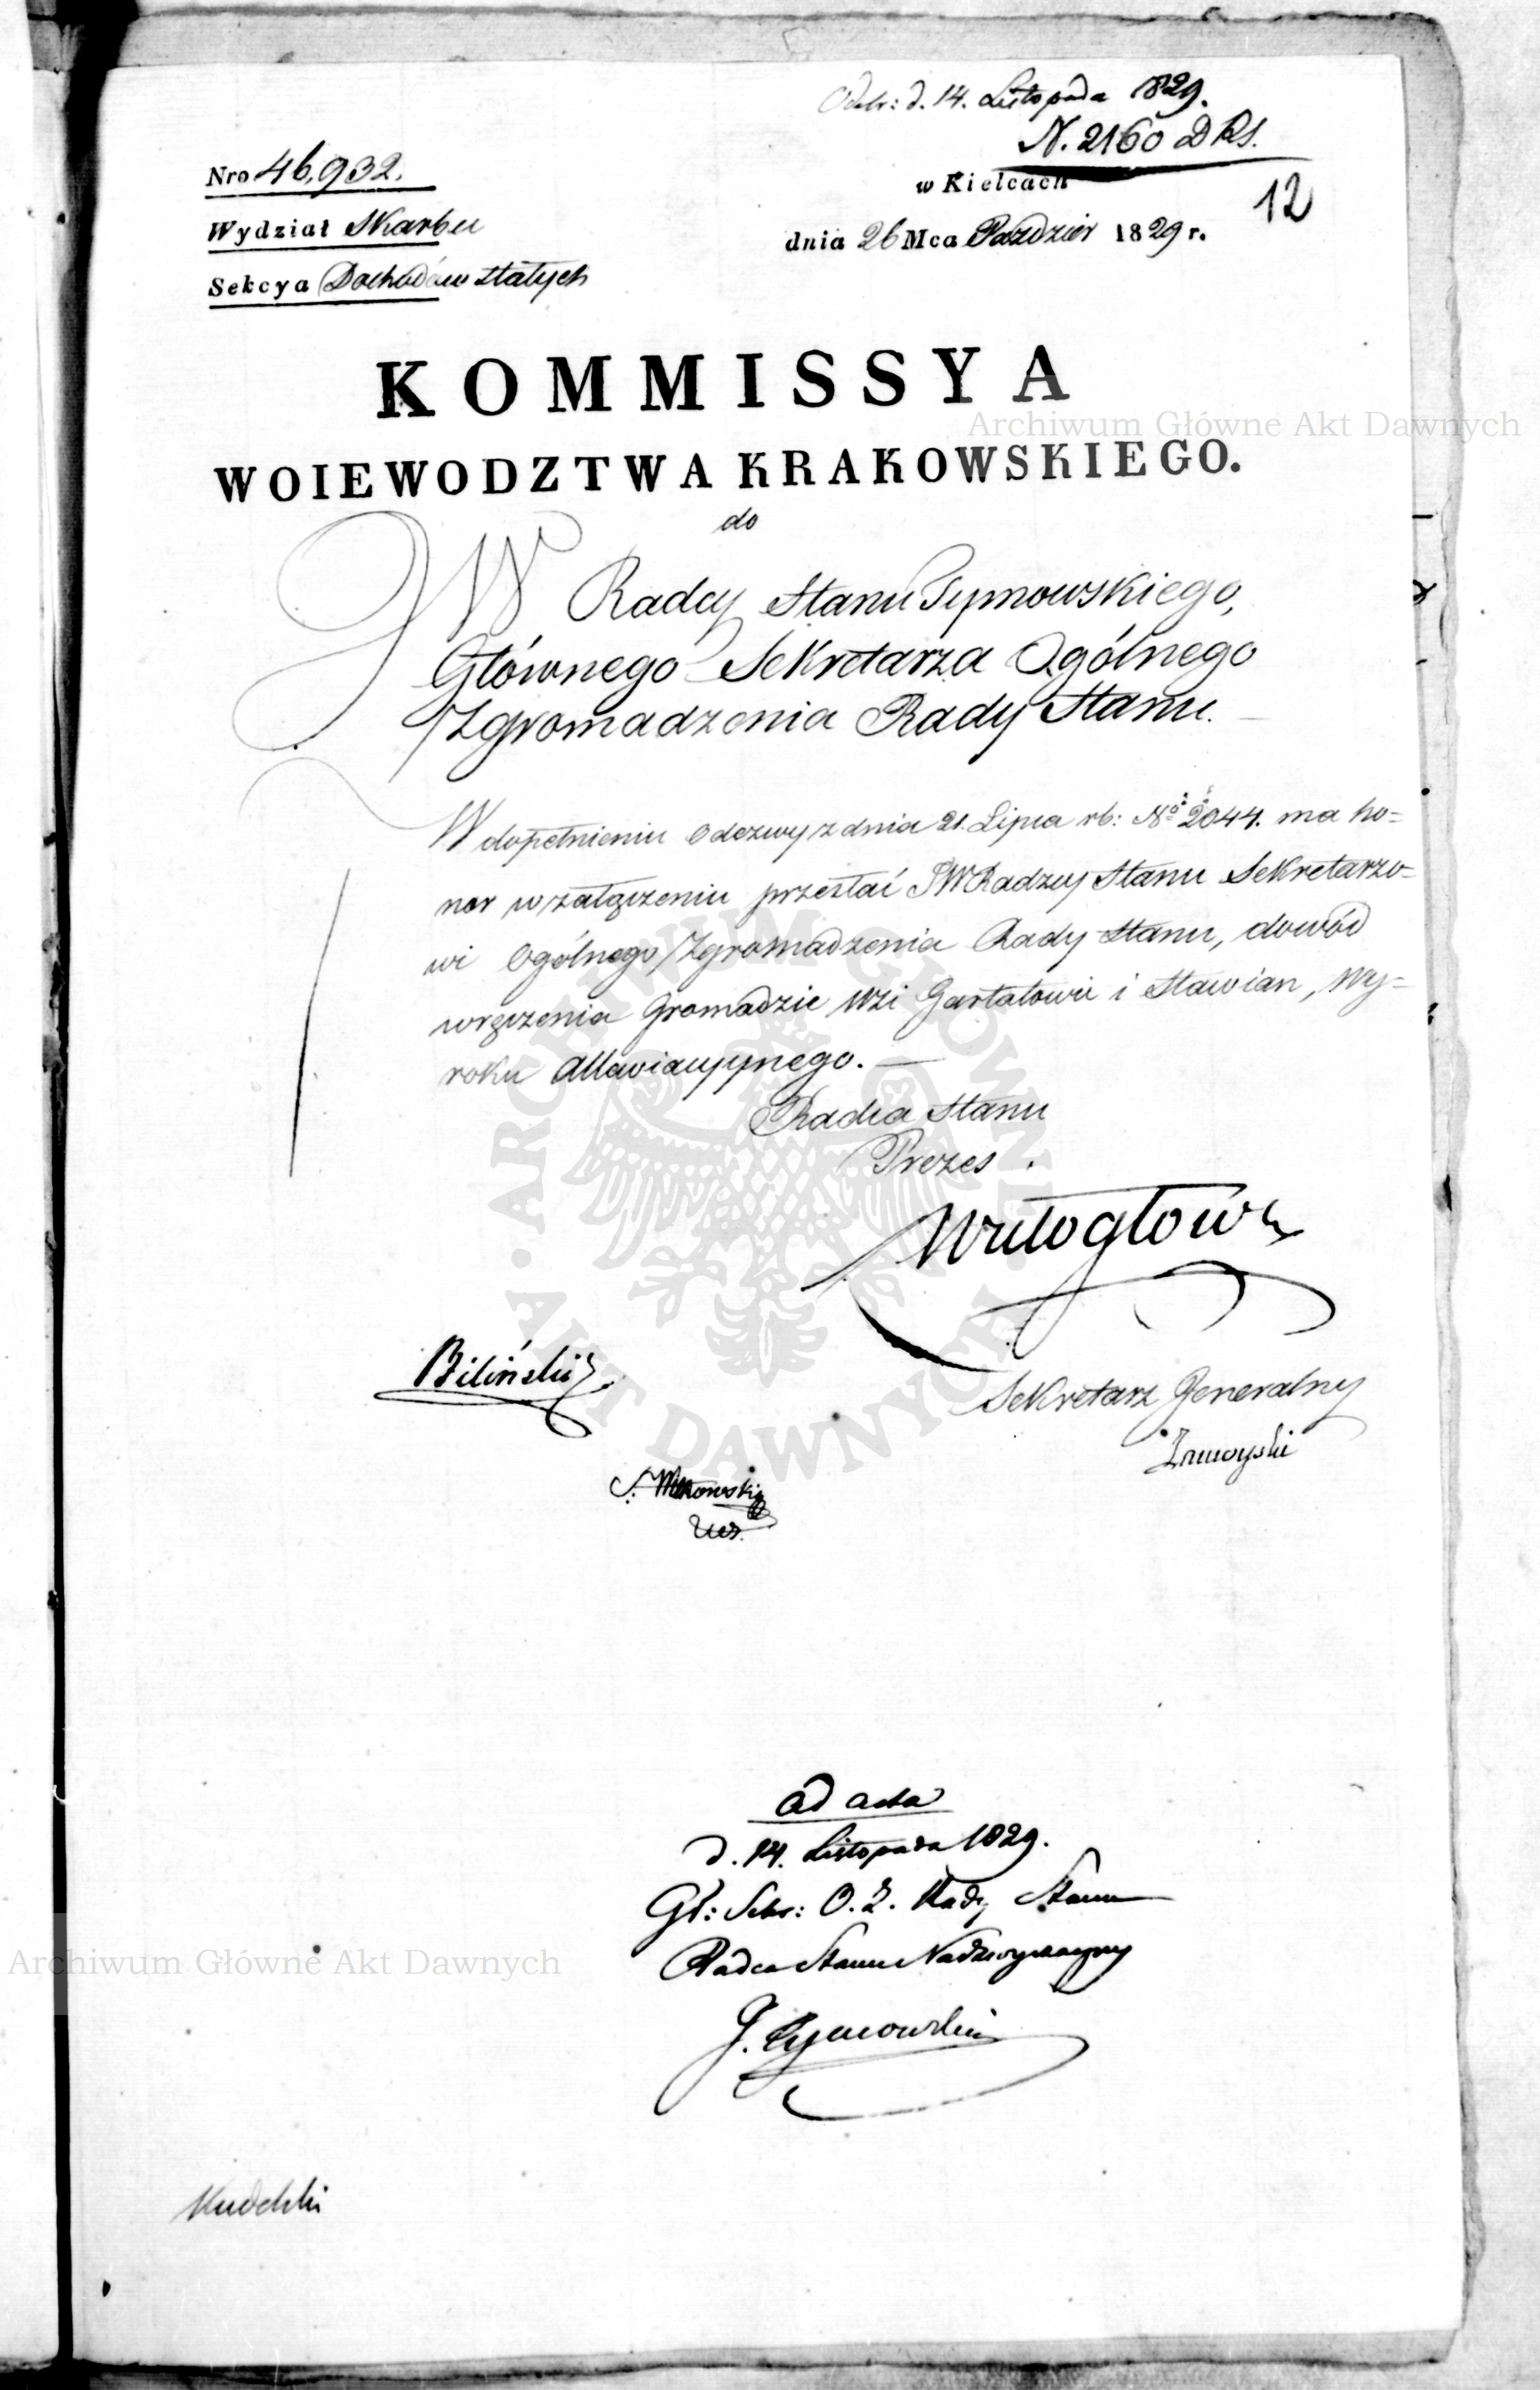 Odebr: d. 14. Listopada 1829.
N. 2160 D Rs.
12
Nro 46,932.
Wydział Skarbu
Sekcya Dochodów stałych
w Kielcach
dnia 26 Mca Paździer 1829 r.
KOMMISSYA
WOIEWODZTWA KRAKOWSKIEGO.
do
JW Radcy Stanu Tymowskiego,
Głównego Sekretarza Ogólnego
Zgromadzenia Rady Stanu.
W dopełnieniu odezwy z dnia 21. Lipca rb: No 2044. ma ho=
nor w załączeniu przesłać JW Radzcy Stanu Sekretarzo=
wi Ogólnego Zgromadzenia Rady Stanu, dowód
wręczenia Gromadzie Wsi Gartatowic i Stawian, Wy=
roku Allewiacyjnego. —
Radca Stanu
Prezes.
Wielogłows
Biliński
Sekretarz Generalny
Zamoyski
ad acta
d. 14. Listopada 1829.
Gł: Sekr: O. Z. Rady Stanu
Radca Stanu Nadzwyczayny
J. Tymowski
Archiwum Główne Akt Dawnych
Archiwum Główne Akt Dawnych
ARCHIWUM GŁÓWNE • AKT DAWNYCH •